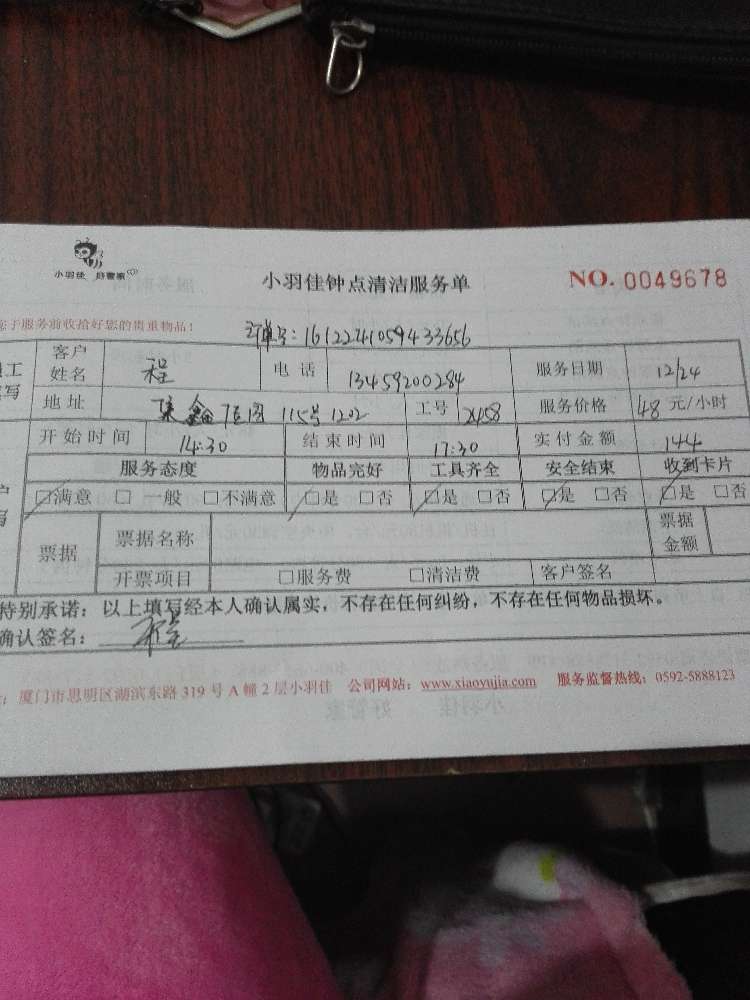 小羽佳 好管家
小羽佳钟点清洁服务单
NO. 0049678
于服务前收拾好您的贵重物品！
订单号：1612241059433656
客户姓名 程 电话 13459200284 服务日期 12/24
地址 115号1202 工号 2458 服务价格 48 元/小时
开始时间 14:30 结束时间 17:30 实付金额 144
服务态度 物品完好 工具齐全 安全结束 收到卡片
□满意 □一般 □不满意 □是 □否 □是 □否 □是 □否 □是 □否
票据 票据名称 票据金额
开票项目 □服务费 □清洁费 客户签名
特别承诺：以上填写经本人确认属实，不存在任何纠纷，不存在任何物品损坏。
确认签名：
：厦门市思明区湖滨东路 319 号 A 幢 2 层小羽佳 公司网站：www.xiaoyujia.com 服务监督热线：0592-5888123